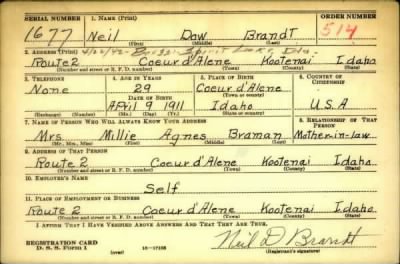 SERIAL NUMBER 1. NAME (Print) ORDER NUMBER
1677 Neil Dow Brandt 514
(First) (Middle) (Last)
2. ADDRESS (Print) 4/22/42- Spirit Lake, Ida.
Route 2 Coeur d'Alene Kootenai Idaho
(Number and street or R. F. D. number) (Town) (County) (State)
3. TELEPHONE 4. AGE IN YEARS 5. PLACE OF BIRTH 6. COUNTRY OF CITIZENSHIP
None 29 Coeur d'Alene
DATE OF BIRTH (Town or county)
April 9 1911 Idaho U.S.A
(Exchange) (Number) (Mo.) (Day) (Yr.) (State or country)
7. NAME OF PERSON WHO WILL ALWAYS KNOW YOUR ADDRESS 8. RELATIONSHIP OF THAT PERSON
Mrs Millie Agnes Braman Mother-in-law
(Mr., Mrs., Miss) (First) (Middle) (Last)
9. ADDRESS OF THAT PERSON
Route 2 Coeur d'Alene Kootenai Idaho
(Number and street or R. F. D. number) (Town) (County) (State)
10. EMPLOYER'S NAME
Self
11. PLACE OF EMPLOYMENT OR BUSINESS
Route 2 Coeur d'Alene Kootenai Idaho
(Number and street or R. F. D. number) (Town) (County) (State)
I AFFIRM THAT I HAVE VERIFIED ABOVE ANSWERS AND THAT THEY ARE TRUE.
REGISTRATION CARD
D. S. S. Form 1 (over) 16-17105 Neil D Brandt
(Registrant's signature)